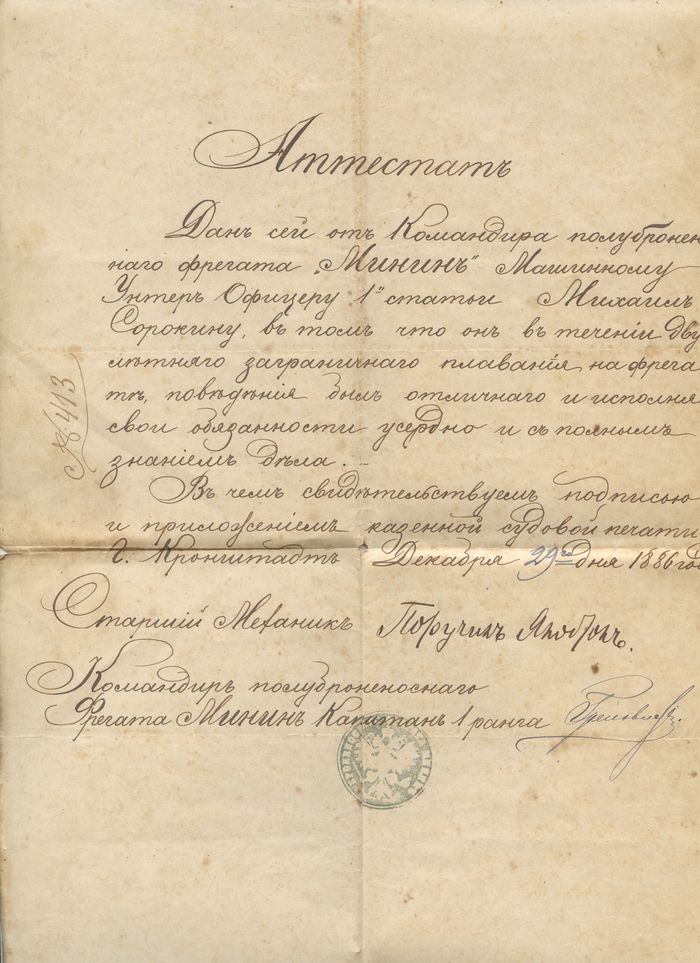 Аттестатъ
Данъ сей отъ Командира полуброненос
наго фрегата „Мининъ“ Машинному
Унтеръ Офицеру 1й статьи Михаилъ
Сорокину, въ томъ что онъ въ теченіи дву
лѣтняго заграничнаго плаванія, на фрега
тѣ, поведѣнія былъ отличнаго и исполня
свои обязанности усердно и съ полнымъ
знаніемъ дѣла. –
Въ чемъ свидѣтельствуемъ подписью
и приложеніемъ казенной судовой печати
Г. Кронштадтъ Декабря 29го дня 1886 год
№ 413
Старшій Механикъ Поручикъ
Командиръ полуброненоснаго
Фрегата Мининъ Капитанъ 1 ранга